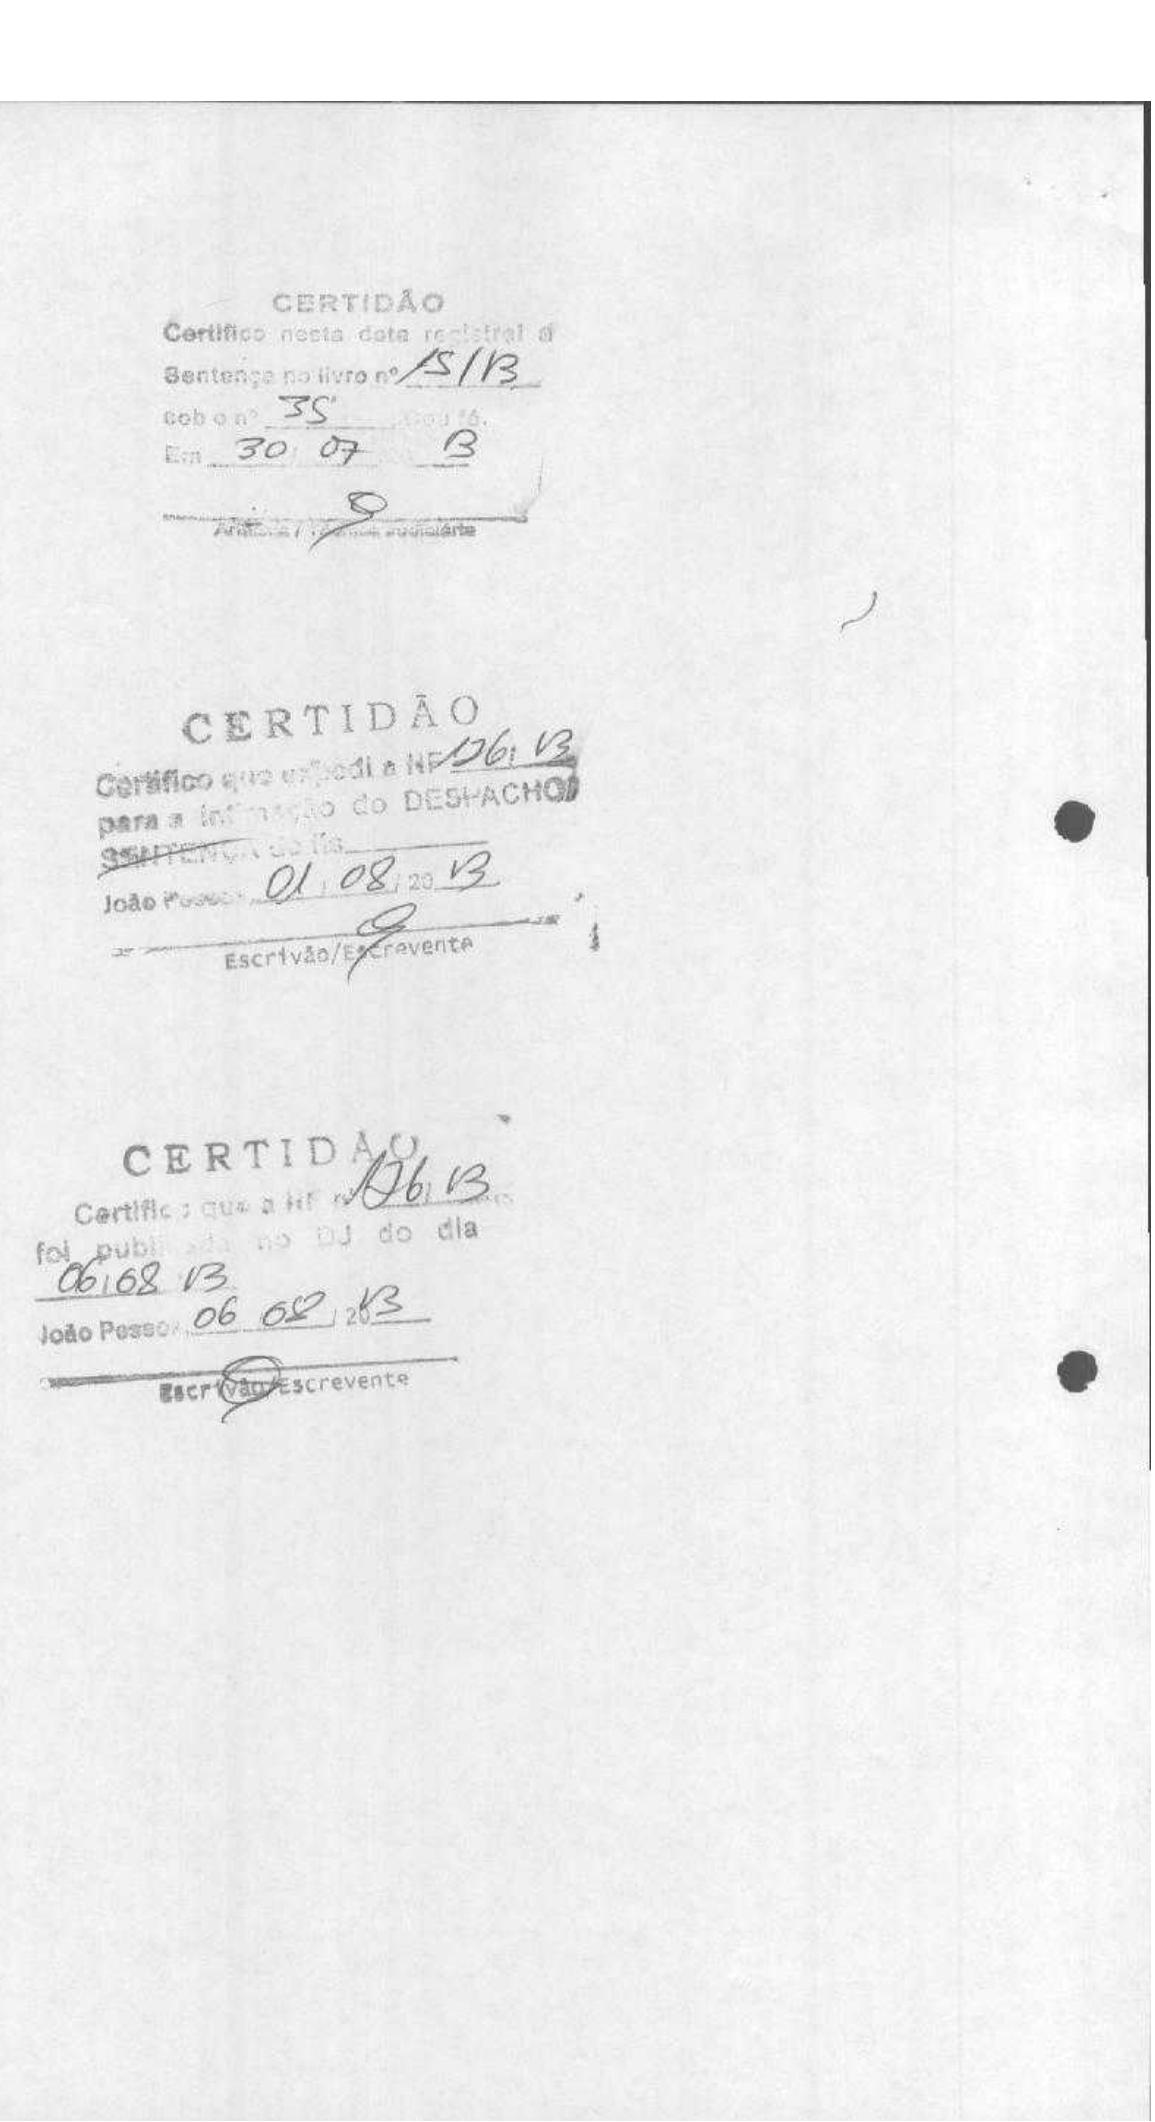 CERTIDÃO
Certifico nesta data registrei a
Sentença no livro nº 15/13
sob o nº 35 Dou fé.
Em 30 07 13
Analista / Técnico Judiciário
CERTIDÃO
Certifico que expedi a NF 126, 13
para a intimação do DESPACHO/
SENTENÇA de fls.
João Pessoa, 01 / 08 / 20 13
Escrivão/Escrevente
CERTIDÃO
Certifico que a NF nº 126, 13
foi publicada no DJ do dia
06, 08 13
João Pessoa, 06 08 / 20 13
Escrivão/Escrevente